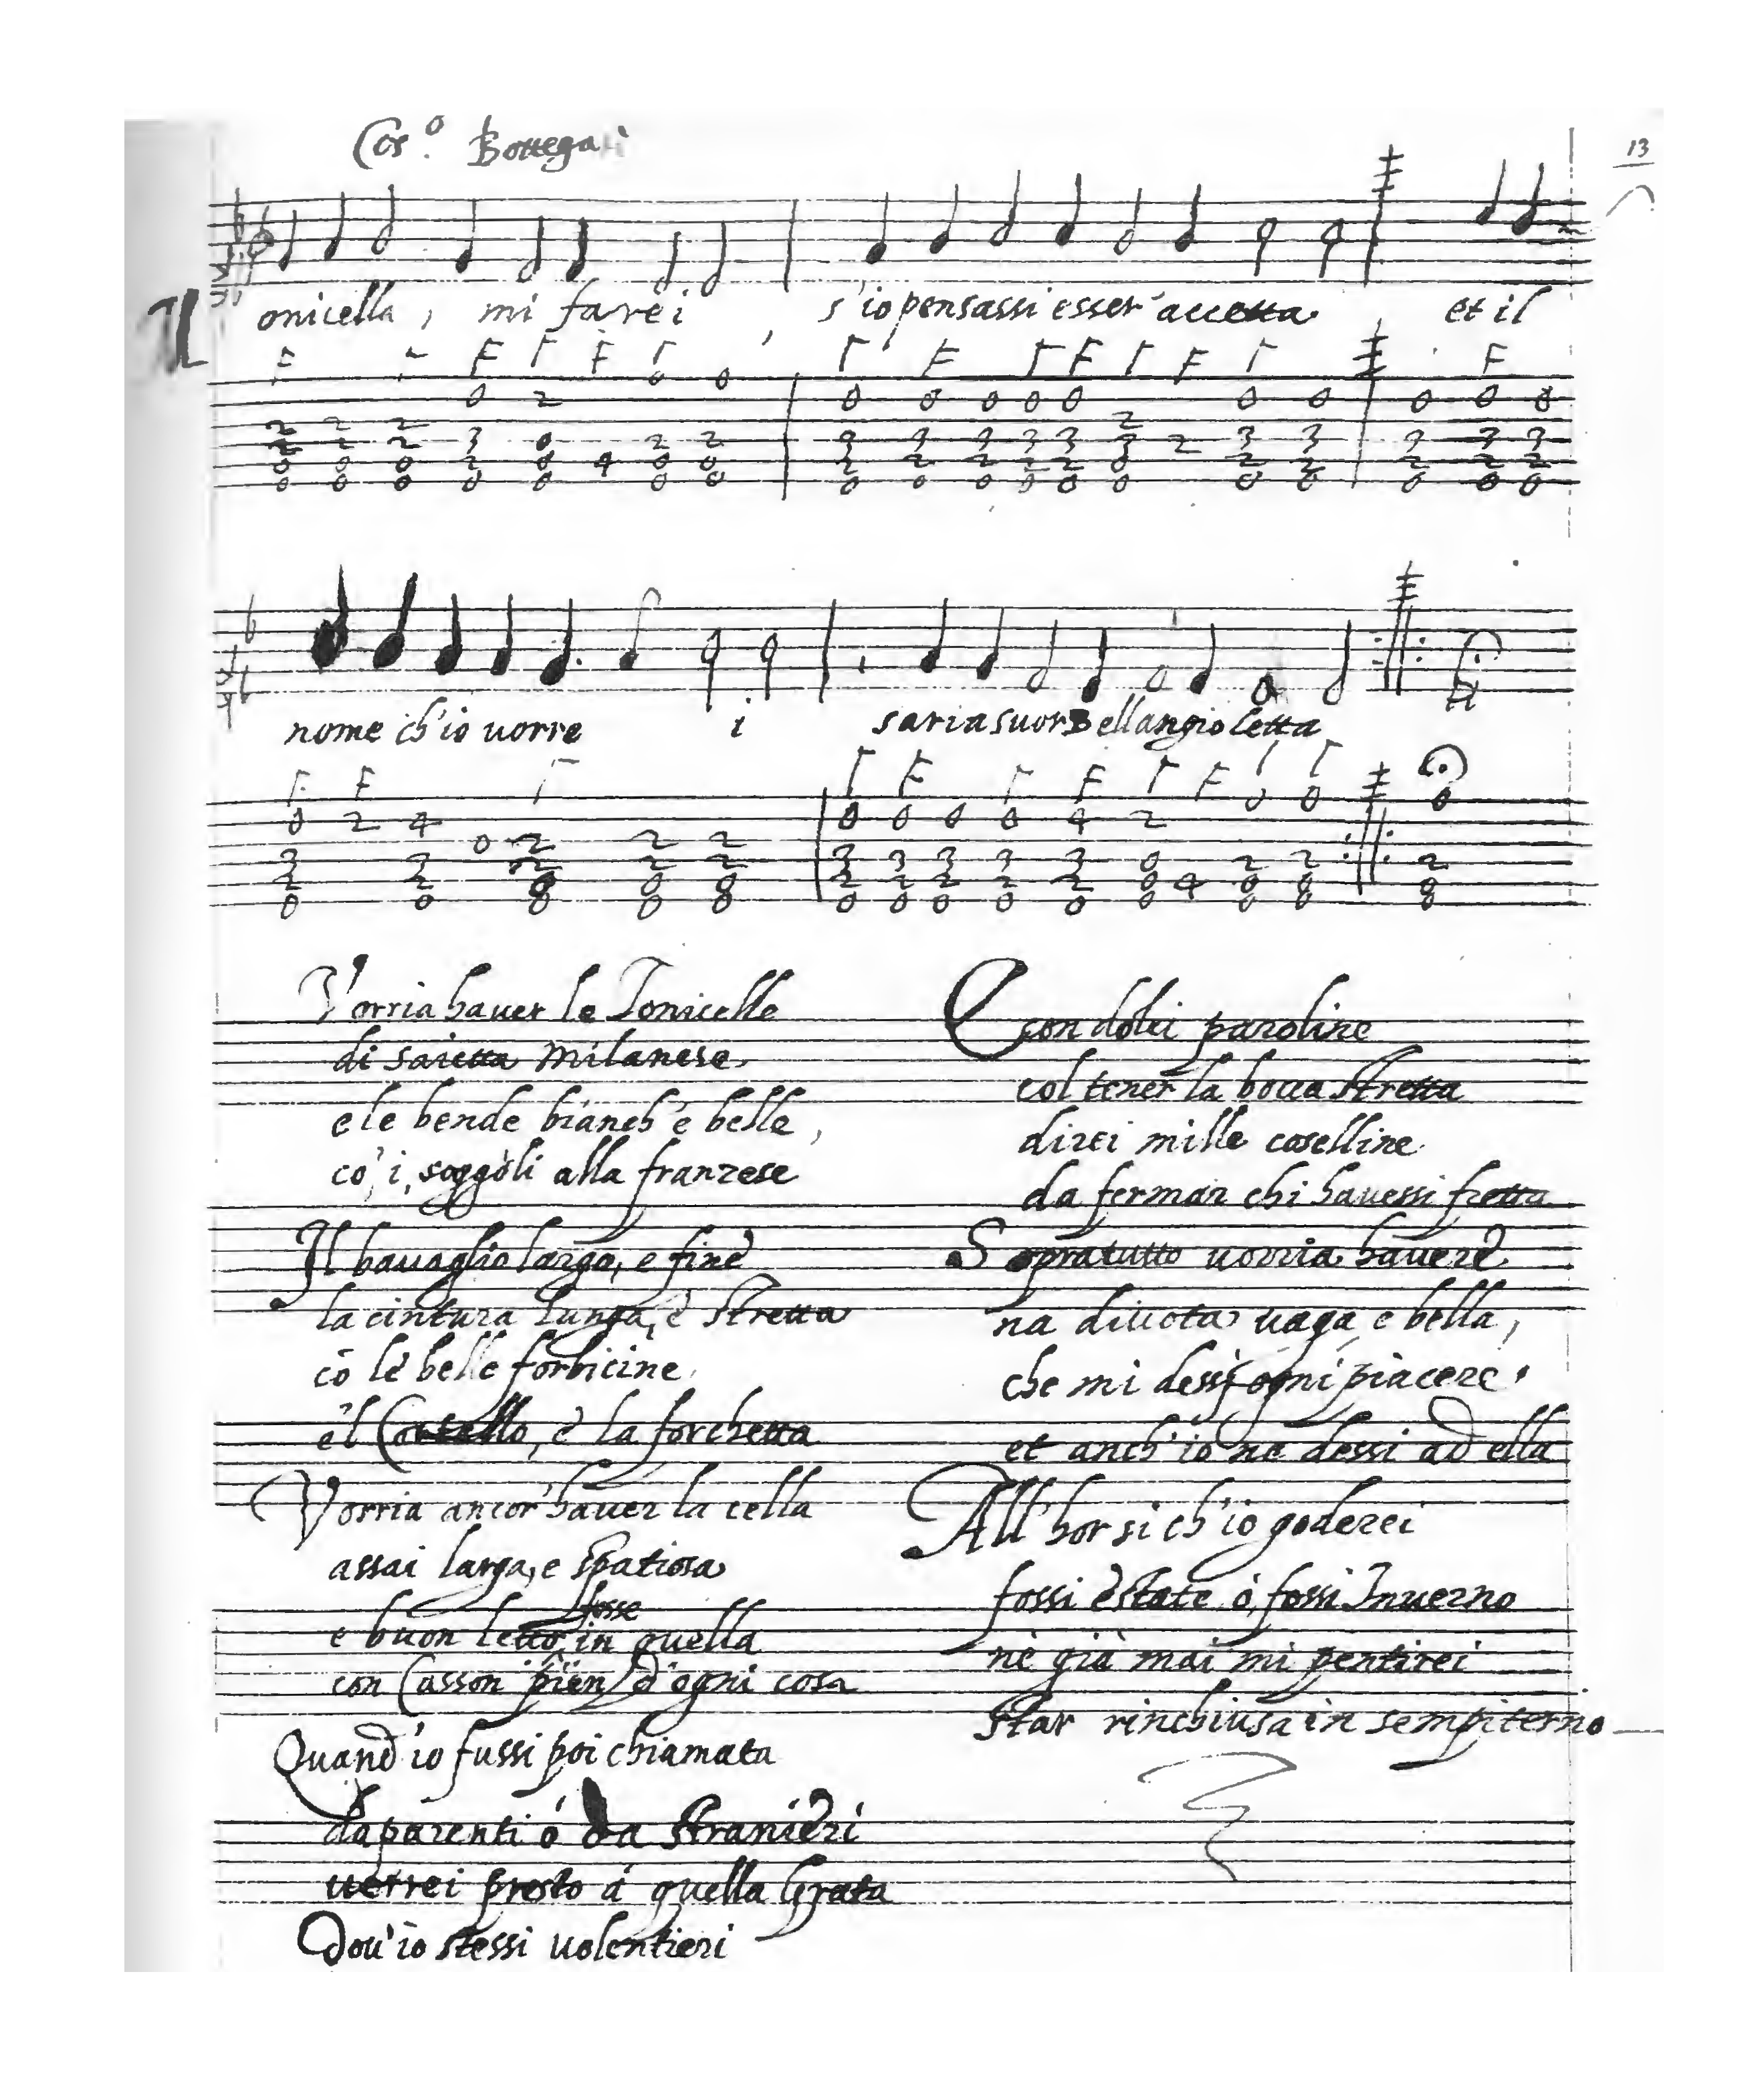 Cos.º Bottegari
13
Monicella, mi farei, s'io pensassi esser' accetta et il
nome ch'io uorre i saria suor Bellangioletta
Vorria hauer le Tonicelle
di saietta Milanese
e le bende bianch'e belle,
cō i soggòli alla franzese
Il bauaglio largo, e fine
la cintura lunga, e stretta
cō le belle forbicine
e'l Coltello, e la forchetta
Vorria ancor' hauer la cella
assai larga, e spatiosa
fosse
e buon letto in quella
con Casson pien d'ogni cosa
Quand'io fussi poi chiamata
da parenti ó da stranieri
uerrei presto á quella Grata
Dou'io stessi uolentieri
E con dolci paroline
col tener la bocca stretta
direi mille coselline
da fermar chi hauessi fretta
Sopratutto uorria hauere
na diuota uaga e bella,
che mi dessi ogni piacere
et anch'io ne dessi ad ella
All'hor si ch'io goderei
fossi estate ó fossi Inuerno
nè già mai mi pentirei
star rinchiusa in sempiterno